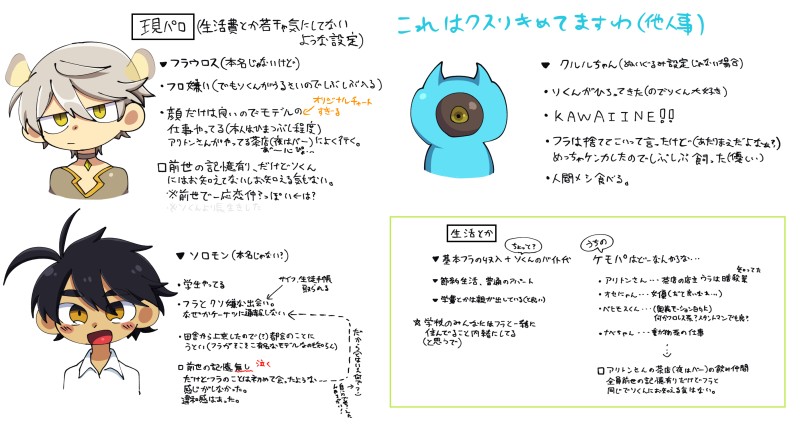 現パロ (生活費とか若干気にしてない
ような設定)
▼ フラウロス (本名じゃないけど)
・フロ嫌い (でもソくんがうるさいのでしぶしぶ入る)
オリジナルチャート
すぎーる
・顔だけは良いのでモデルの
仕事やってる (本人はひまつぶし程度)
アリトンさんがやってる茶店(夜はバー)によく行く。
□前世の記憶有、だけどソくん
にはお知えてないしお知える気もない。
※前世で一応恋仲?っぽい
▼ ソロモン (本名じゃない?)
・学生やってる
サイフ、生徒手帳
取られる
・フラとクソ嫌な出会い。
なぜかケーサツに通報しない
・田舎から上京したので(?)都会のことに
うとい(フラがそこそこ有名なモデルなのも知らん)
□前世の記憶無し 泣く
だけどフラのことは初めて会ったような
感じがしなかった。
違和感はあった。
これはクスリきめてますわ(他人事)
▼ クルルちゃん (ぬいぐるみ設定じゃない場合)
・ソくんがひろってきた(のでソくん大好き)
・KAWAIINE!!
・フラは捨ててこいって言ったけど(あたりまえだよなぁ?)
めっちゃケンカしたのでしぶしぶ飼った(優しい)
・人間メシ食べる。
生活とか
ちょっと?
▼ 基本フラの収入+ソくんのバイト代
▼ 節約生活、普通のアパート
▼ 学費とかは親が出している(と良い)
※ 学校のみんなにはフラと一緒に
住んでること内緒にしてる
(と思うで)
うちの
ケモパはどーなんかるな…
・アリトンさん…茶店の店主 ウラは暗殺業
・べヒモスくん…
・ナベちゃん…
□ アリトンさんの茶店(夜はバー)の飲み仲間
全員前世の記憶有りだけどフラと
同じでソくんにお知える気はない。